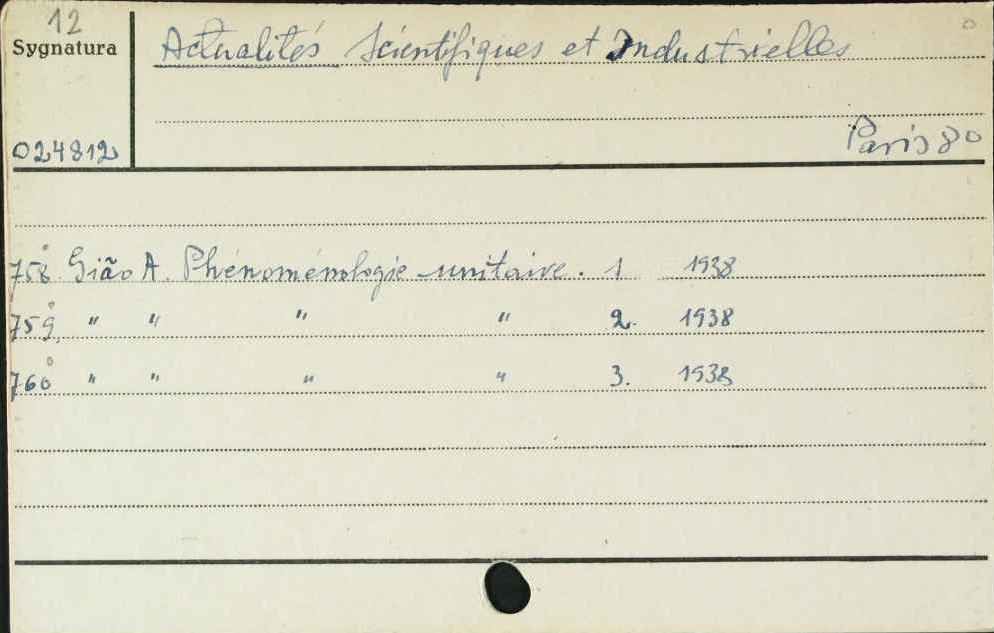 12
Sygnatura
Actualités Scientifiques et Industrielles
024812
Paris 8°
758° Gião A. Phénoménologie unitaire. 1 1938
759° " " " " 2. 1938
760° " " " " 3. 1938